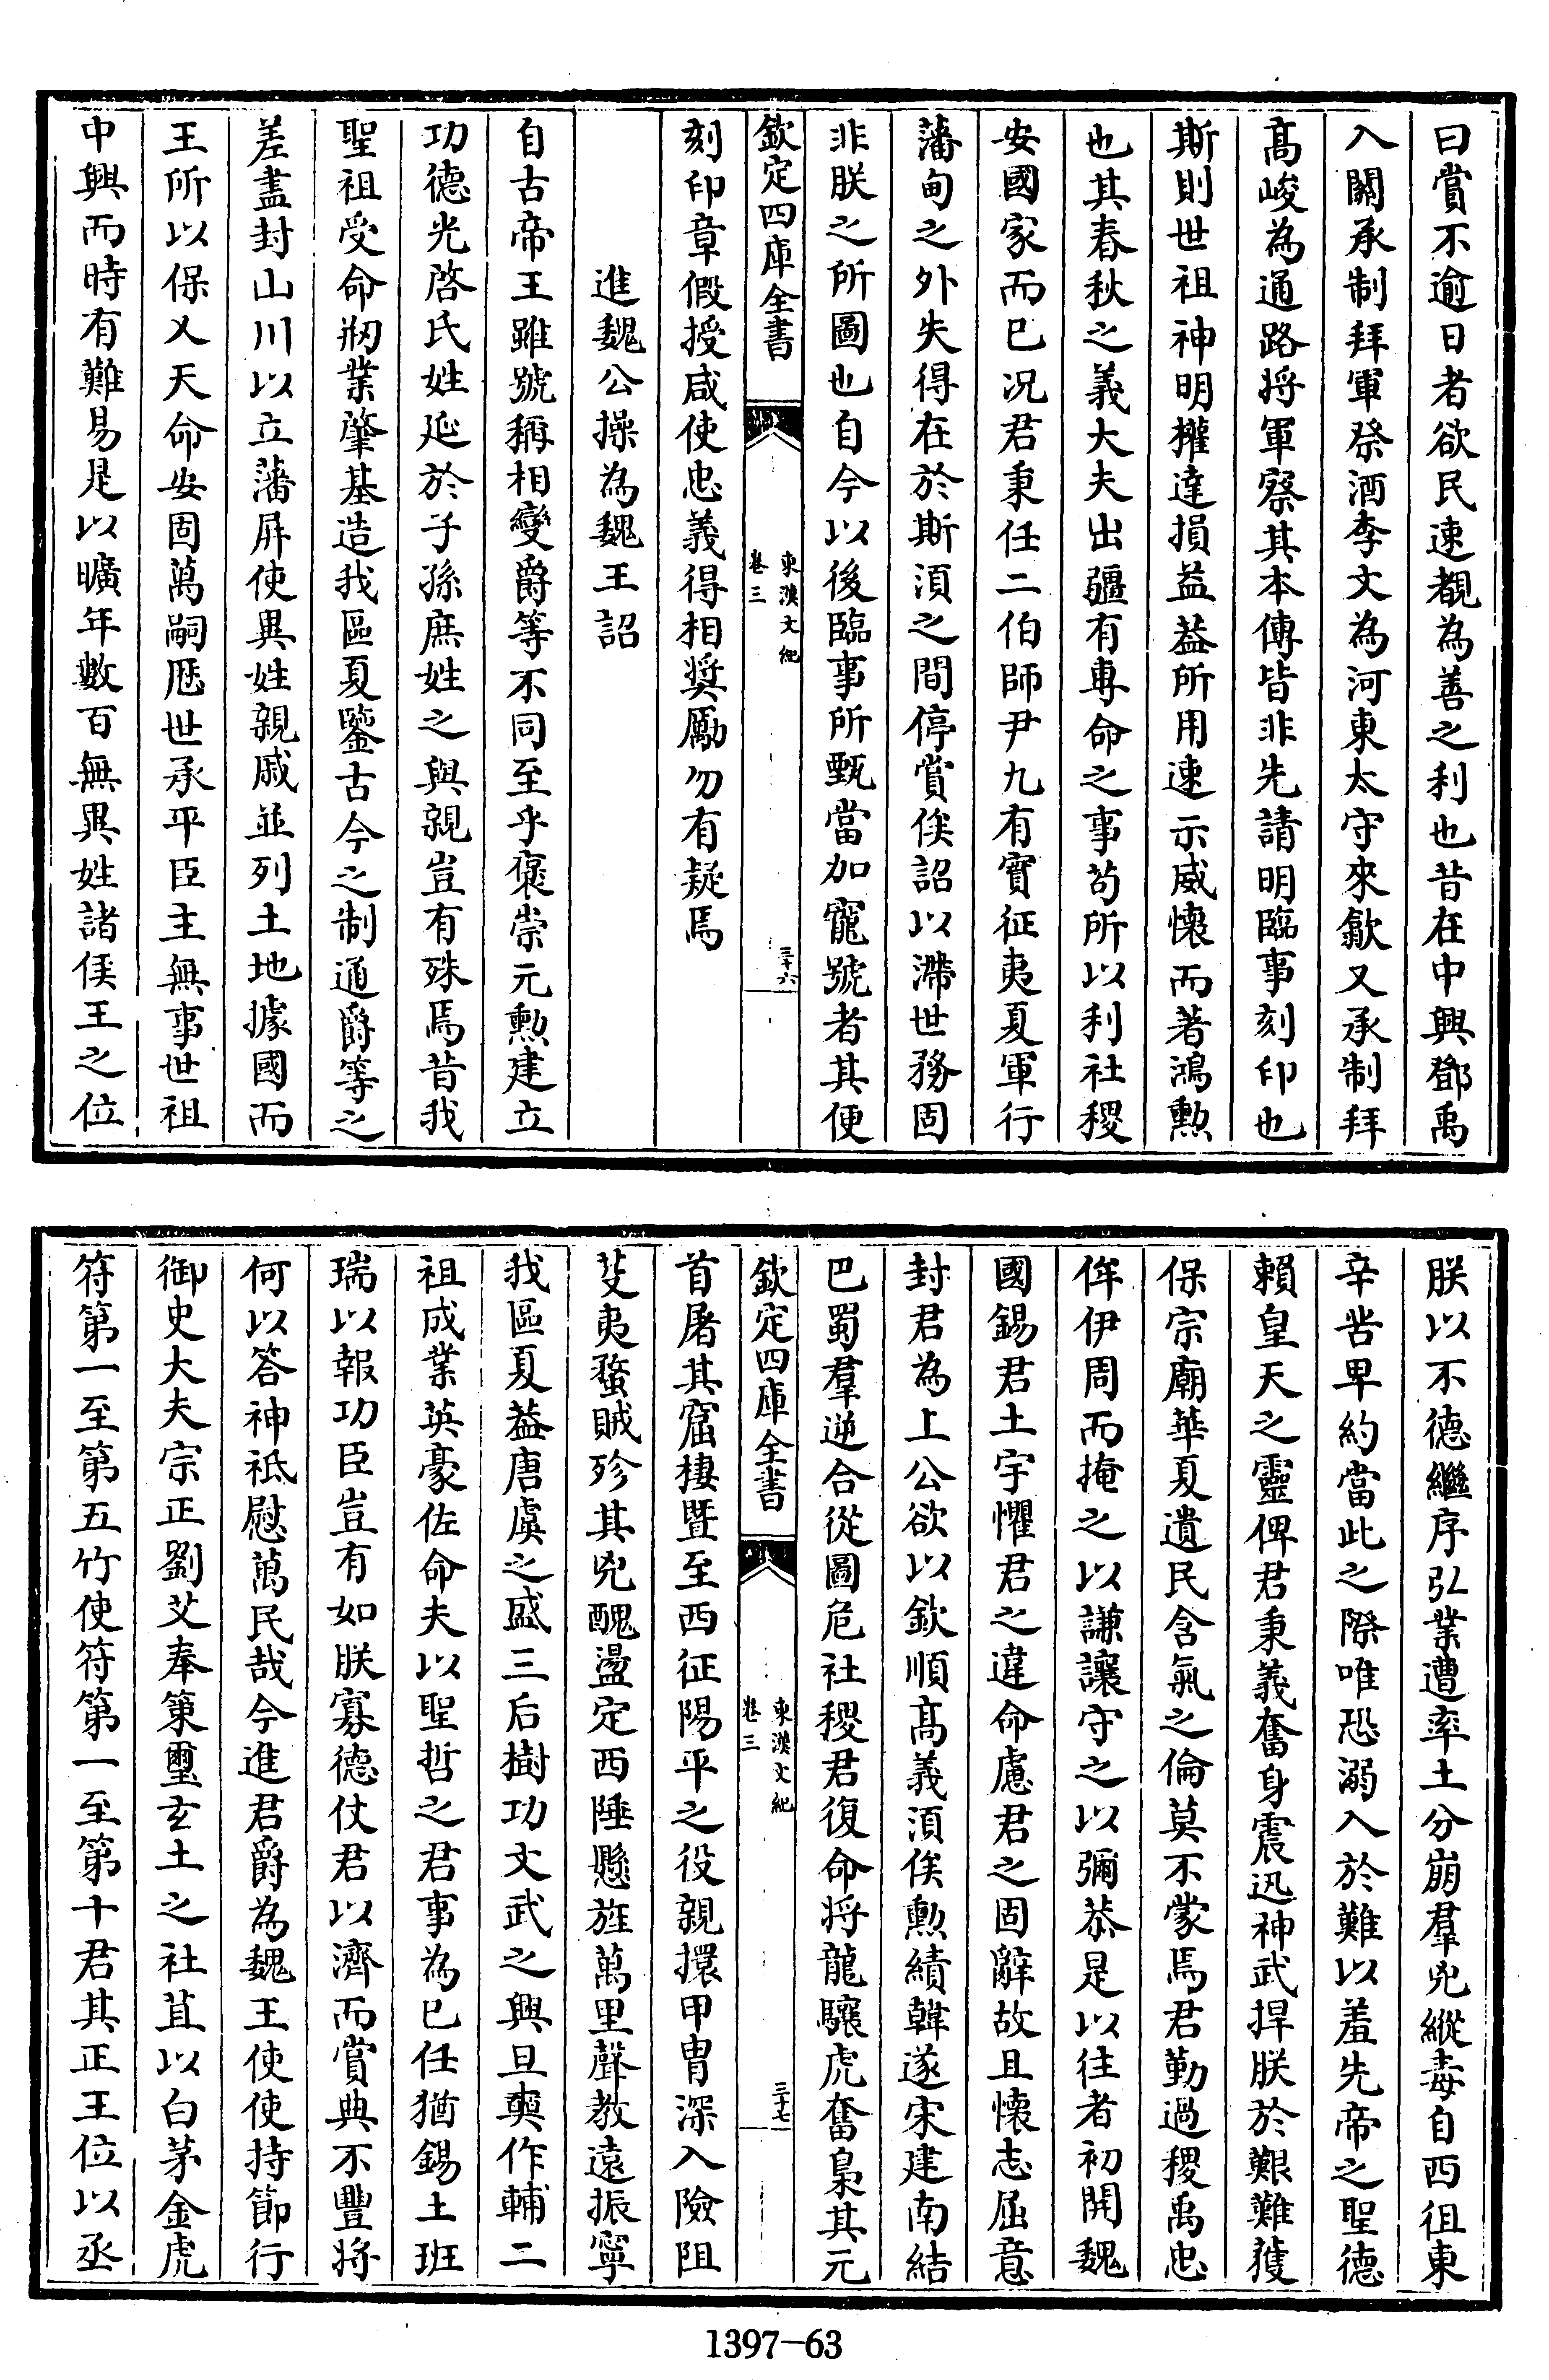 曰賞不逾日者欲民速覩為善之利也昔在中興鄧禹
入關承制拜軍祭酒李文為河東太守來歙又承制拜
髙峻為通路將軍察其本傳皆非先請明臨事刻印也
斯則世祖神明權達損益葢所用速示威懷而著鴻勲
也其春秋之義大夫出疆有專命之事苟所以利社稷
安國家而已况君秉任二伯師尹九有實征夷夏軍行
藩甸之外失得在於斯湏之間停賞俟詔以滯世務固
非朕之所圖也自今以後臨事所甄當加寵號者其便
欽定四庫全書
東漢文紀
卷三
三十六
刻印章假授咸使忠義得相奬勵勿有疑焉
進魏公操為魏王詔
自古帝王雖號稱相變爵等不同至乎褒崇元勲建立
功德光啓氏姓延於子孫庶姓之與親豈有殊焉昔我
聖祖受命剏業肇基造我區夏鑒古今之制通爵等之
差盡封山川以立藩屏使異姓親戚並列土地據國而
王所以保乂天命安固萬嗣厯世承平臣主無事世祖
中興而時有難易是以曠年數百無異姓諸侯王之位
朕以不德繼序弘業遭率土分崩羣兇縱毒自西徂東
辛苦卑約當此之際唯恐溺入於難以羞先帝之聖德
賴皇天之靈俾君秉義奮身震迅神武捍朕於艱難獲
保宗廟華夏遺民含氣之倫莫不蒙焉君勤過稷禹忠
侔伊周而掩之以謙讓守之以彌恭是以往者初開魏
國錫君土宇懼君之違命慮君之固辭故且懷志屈意
封君為上公欲以欽順髙義湏俟勲績韓遂宋建南結
巴蜀羣逆合從圖危社稷君復命將龍驤虎奮梟其元
欽定四庫全書
東漢文紀
卷三
三十七
首屠其窟棲暨至西征陽平之役親擐甲冑深入險阻
芟夷蝥賊殄其兇醜盪定西陲懸旌萬里聲教遠振寧
我區夏葢唐虞之盛三后樹功文武之興旦奭作輔二
祖成業英豪佐命夫以聖哲之君事為已任猶錫土班
瑞以報功臣豈有如朕寡德仗君以濟而賞典不豐將
何以答神祇慰萬民哉今進君爵為魏王使使持節行
御史大夫宗正劉艾奉䇿璽玄土之社苴以白茅金虎
符第一至第五竹使符第一至第十君其正王位以丞
1397-63